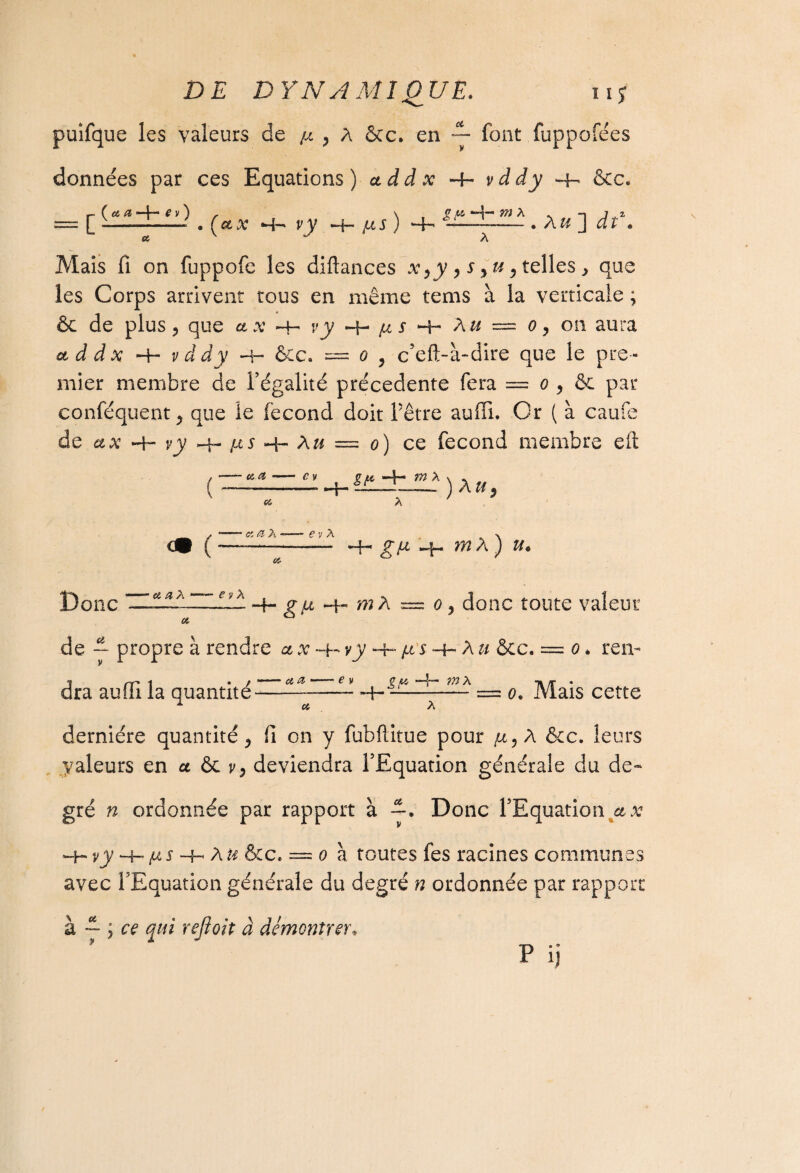 DE DYNAMIQUE. 115
puifque les valeurs de μ, λ &c. en α/ν font fuppofées
données par ces Equations) αddx + νddy + &c.
= [(αa + eν)/α . (αx + νy + μs) + (gμ + mλ)/λ . λu] dt².
Mais fi on fuppofe les diftances x, y, s, u, telles, que
les Corps arrivent tous en même tems à la verticale;
& de plus, que αx + νy + μs + λu = 0, on aura
αddx + νddy + &c. = 0, c'eft-à-dire que le pre-
mier membre de l'égalité précedente fera = 0, & par
conféquent, que le fecond doit l'être auffi. Or (à caufe
de αx + νy + μs + λu = 0) ce fecond membre eft
((—αa — eν)/α + (gμ + mλ)/λ) λu,
((—αaλ — eνλ)/α + gμ + mλ) u.
Donc (—αaλ — eνλ)/α + gμ + mλ = 0, donc toute valeur
de α/ν propre à rendre αx + νy + μs + λu &c. = 0. ren-
dra auffi la quantité (—αa — eν)/α + (gμ + mλ)/λ = 0. Mais cette
derniére quantité, fi on y fubftitue pour μ, λ &c. leurs
valeurs en α & ν, deviendra l'Equation générale du de-
gré n ordonnée par rapport à α/ν. Donc l'Equation αx
+ νy + μs + λu &c. = 0 à toutes fes racines communes
avec l'Equation générale du degré n ordonnée par rapport
à α/ν; ce qui reftoit à démontrer.
P ij